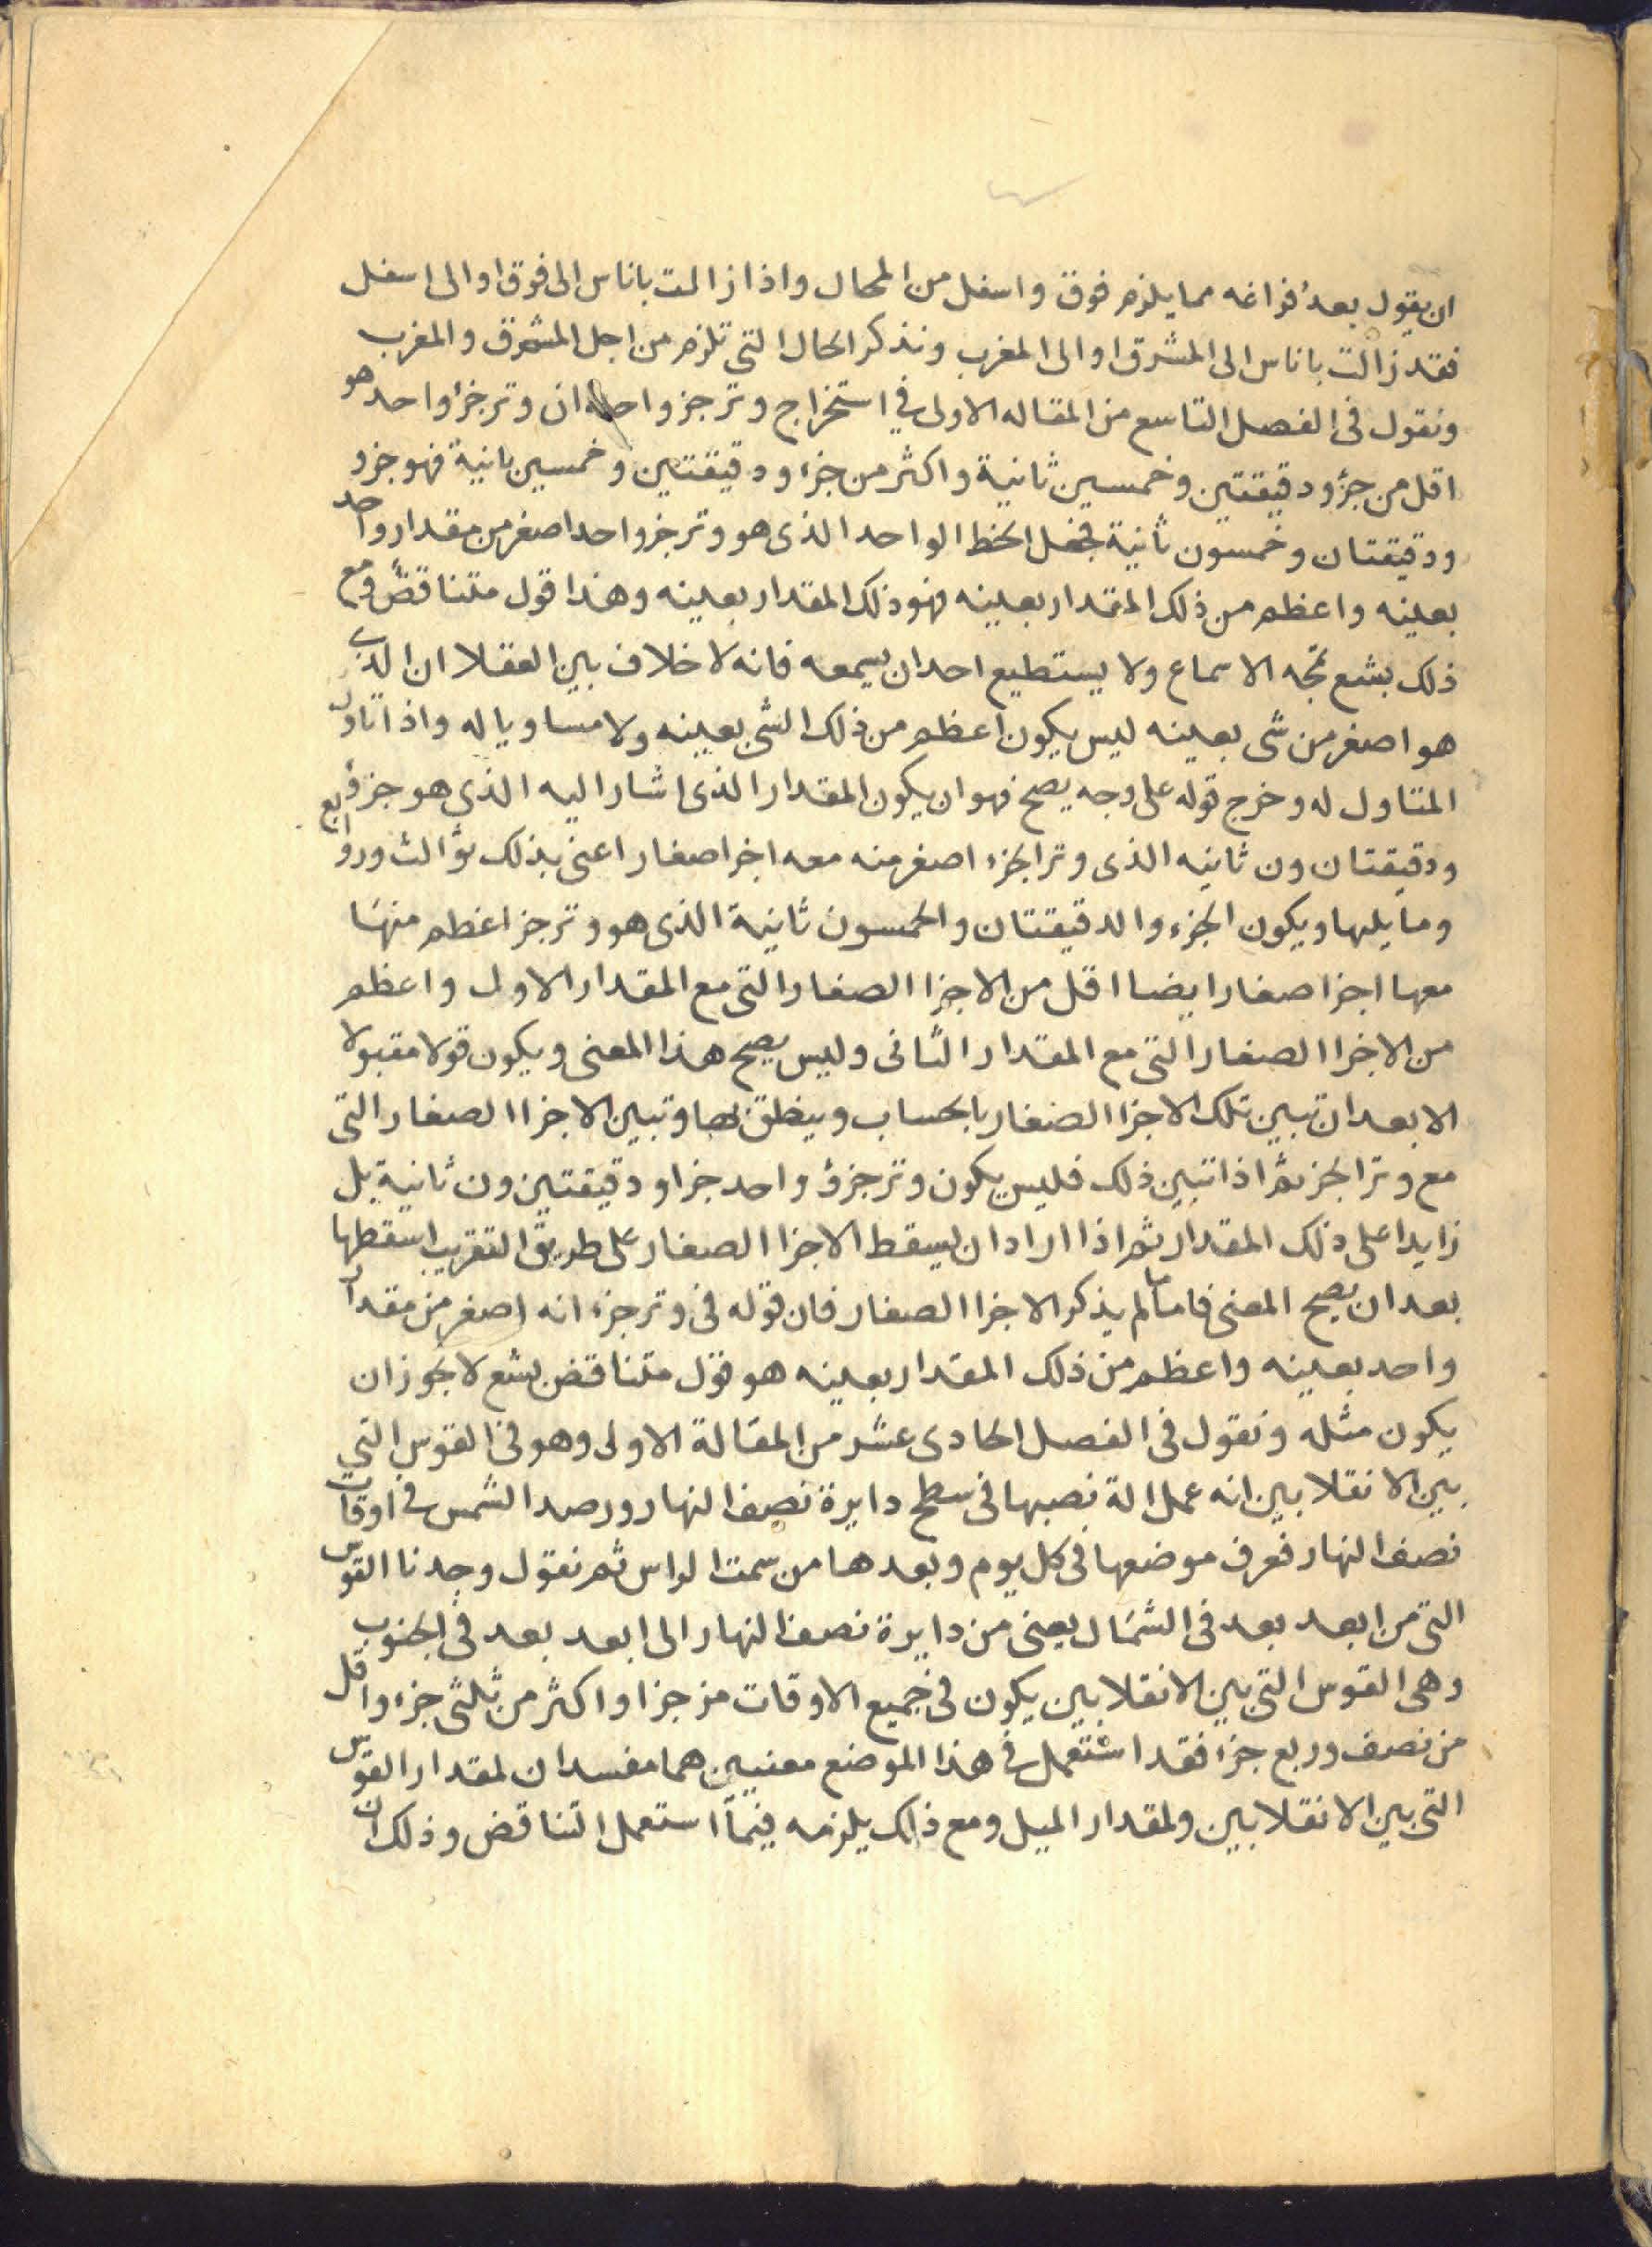 ان يقول بعد فراغه مما يلزم فوق واسفل من المحال واذا زالت باناس الى فوق او الى اسفل
فقد زالت باناس الى المشرق او الى المغرب ونذكر الحال التى تلزم من اجل المشرق والمغرب
ونقول فى الفصل التاسع من المقاله الاولى فى استخراج وتر جزو احد ان وتر جزؤ واحد هو
اقل من جزؤ ودقيقتين وخمسين ثانية واكثر من جزء ودقيقتين وخمسين ثانية فهو جزو
ودقيقتان وخمسون ثانية فجعل الخط الواحد الذى هو وتر جزو احد اصغر من مقدار واحد
بعينه واعظم من ذلك المقدار بعينه فهو ذلك المقدار بعينه وهذا قول متناقض ومع
ذلك بشع تمجه الاسماع ولا يستطيع احد ان يسمعه فانه لا خلاف بين العقلا ان الذى
هو اصغر من شى بعينه ليس يكون اعظم من ذلك الشى بعينه ولا مساويا له واذا تاول
المتاول له وخرج قوله على وجه يصح فهو ان يكون المقدار الذى اشار اليه الذى هو جزؤ
ودقيقتان ون ثانيه الذى وتر الجزء اصغر منه معه اجزا صغار اعنى بذلك ثوالث وروابع
وما يليها ويكون الجزء والدقيقتان والخمسون ثانية الذى هو وتر جز اعظم منها
معها اجزا صغار ايضا اقل من الاجزا الصغار التى مع المقدار الاول واعظم
من الاجزا الصغار التى مع المقدار الثانى وليس يصح هذا المعنى ويكون قولا مقبولا
الا بعد ان تبين تلك الاجزا الصغار بالحساب وينطق بها وتبين الاجزا الصغار التى
مع وتر الجز ثم اذا تبين ذلك فليس يكون وتر جزؤ واحد جزا ودقيقتين ون ثانية بل
زايدا على ذلك المقدار ثم اذا اراد ان يسقط الاجزا الصغار على طريق التقريب اسقطها
بعد ان يصح المعنى فاما ما لم يذكر الاجزا الصغار فان قوله فى وتر جزء انه اصغر من مقدار
واحد بعينه واعظم من ذلك المقدار بعينه هو قول متناقض بشع لا يجوز ان
يكون مثله ونقول فى الفصل الحادى عشر من المقالة الاولى وهو فى القوس التى
بين الانقلابين انه عمل الة نصبها فى سطح دايرة نصف النهار ورصد الشمس فى اوقات
نصف النهار فعرف موضعها فى كل يوم وبعدها من سمت الراس ثم نقول وجدنا القوس
التى من ابعد بعد فى الشمال يعنى من دايرة نصف النهار الى ابعد بعد فى الجنوب
وهى القوس التى بين الانقلابين يكون فى جميع الاوقات مز جزا واكثر من ثلثى جزء واقل
من نصف وربع جزء فقد استعمل فى هذا الموضع معنيين هما مفسدان لمقدار القوس
التى بين الانقلابين ولمقدار الميل ومع ذلك يلزمه فيما استعمل التناقض وذلك ان